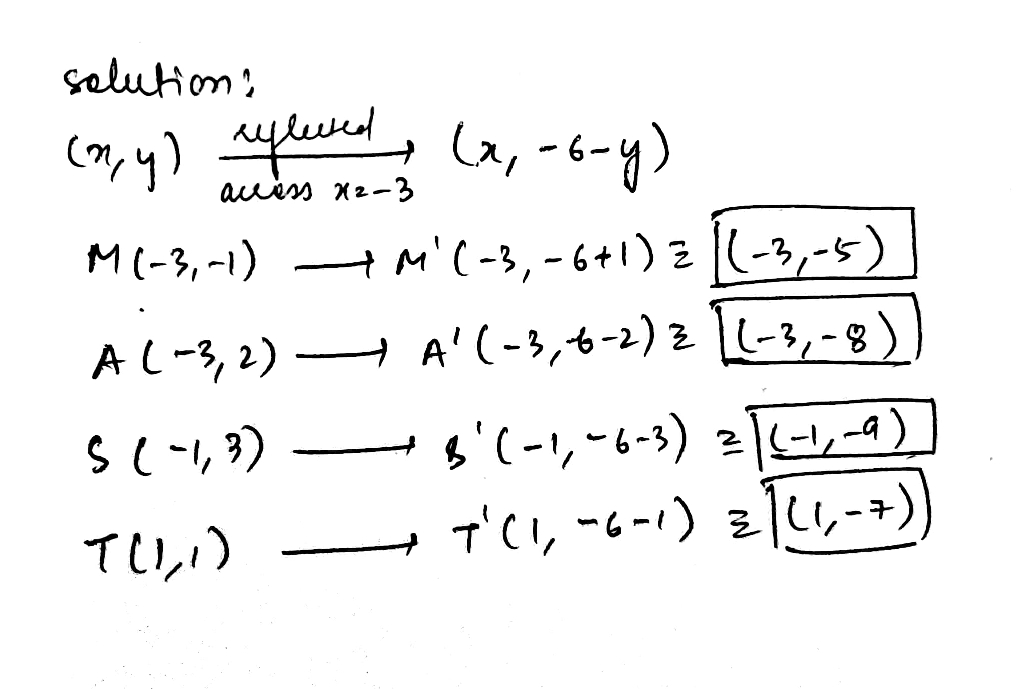 solution:
(x, y) reflected across x=-3 → (x, -6-y)
M(-3,-1) → M'(-3, -6+1) ≡ (-3,-5)
A(-3,2) → A'(-3,-6-2) ≡ (-3,-8)
S(-1,3) → S'(-1,-6-3) ≡ (-1,-9)
T(1,1) → T'(1, -6-1) ≡ (1,-7)